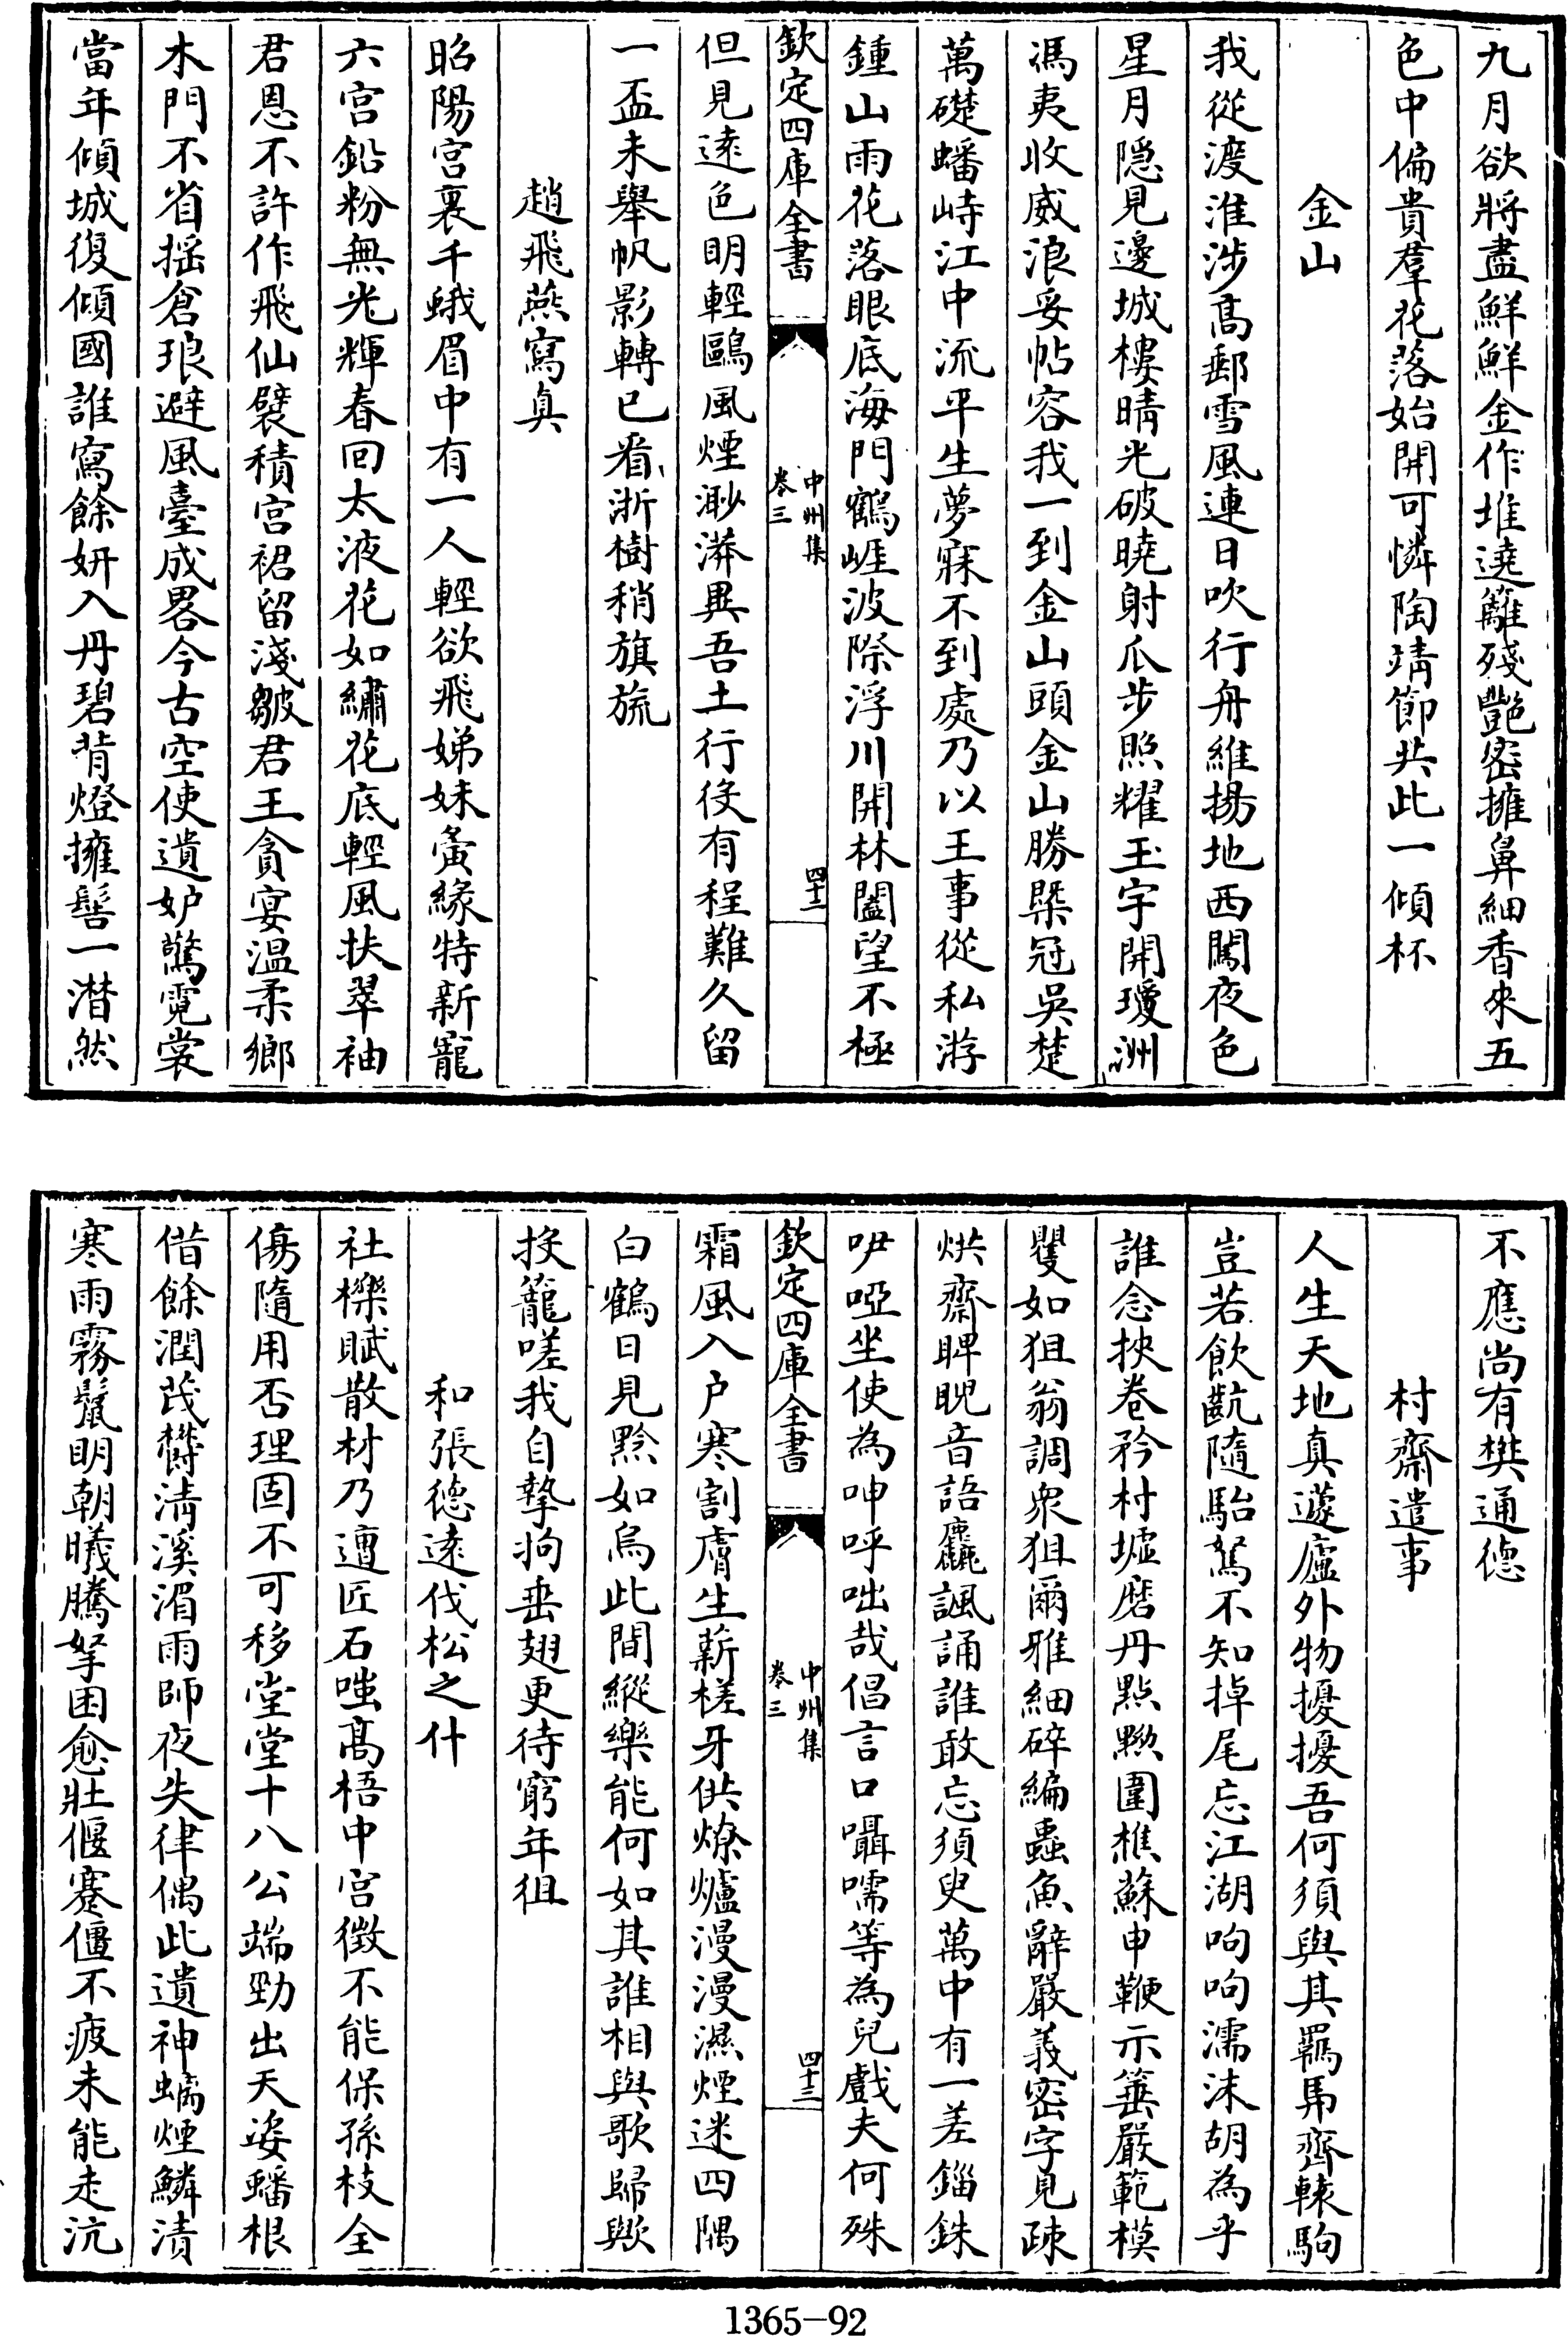 九月欲將盡鮮鮮金作堆遶籬殘艷密擁鼻細香來五
色中偏貴羣花落始開可憐陶靖節共此一傾杯
金山
我從渡淮涉高郵雪風連日吹行舟維揚地西闖夜色
星月隱見邊城樓晴光破曉射爪步照耀玉宇開瓊洲
馮夷收威浪妥帖容我一到金山頭金山勝槩冠吳楚
萬礎蟠峙江中流平生夢寐不到處乃以王事從私游
鍾山雨花落眼底海門鶴崕波際浮川開林闔望不極
欽定四庫全書
中州集
卷三
四十二
但見遠色明輕鷗風煙渺漭異吾土行役有程難久留
一盃未舉帆影轉已看浙樹稍旗旒
趙飛燕寫真
昭陽宮裏千蛾眉中有一人輕欲飛娣妹夤緣特新寵
六宮鉛粉無光輝春回太液花如繡花底輕風扶翠袖
君恩不許作飛仙襞積宮裙留淺皺君王貪宴溫柔鄉
木門不省揺倉琅避風臺成畧今古空使遺妒驚霓裳
當年傾城復傾國誰寫餘妍入丹碧背燈擁髻一潸然
不應尚有樊通德
村齋遣事
人生天地真蘧廬外物擾擾吾何須與其羈馬齊轅駒
豈若飲齕隨駘駑不知掉尾忘江湖呴呴濡沫胡為乎
誰念挾卷矜村墟磨丹點黝圍樵蘇申鞭示箠嚴範模
矍如狙翁調衆狙爾雅細碎編蟲魚辭嚴義密字見疎
烘齋睥睨音語麤諷誦誰敢忘須臾萬中有一差錙銖
吚啞坐使為呻呼咄哉倡言口囁嚅等為兒戲夫何殊
欽定四庫全書
中州集
卷三
四十三
霜風入户寒割膚生薪槎牙供燎爐漫漫濕煙迷四隅
白鶴日見黔如烏此間縱樂能何如其誰相與歌歸歟
投籠嗟我自摯拘垂翅更待窮年徂
和張德遠伐松之什
社櫟賦散材乃遭匠石嗤高梧中宮徵不能保孫枝全
傷隨用否理固不可移堂堂十八公端勁出天姿蟠根
偕餘潤茂欝清溪湄雨師夜失律偶此遺神螭煙鱗漬
寒雨霧鬣明朝曦騰拏困愈壯偃蹇僵不疲未能走沆
1365-92